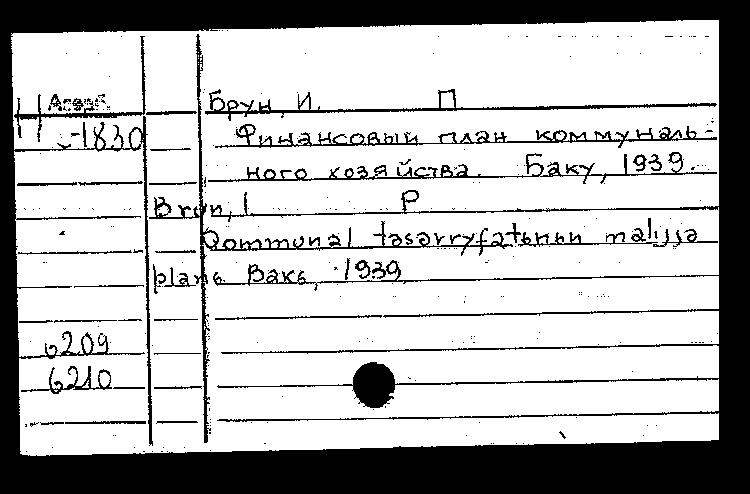 Азерб. Брун, И. П
-1830 Финансовый план коммуналь-
ного хозяйства. Баку, 1939.
Brun, I. P
Qommunal təsərryfatьnьn malijjə
planь Bakь, 1939
6209
6210